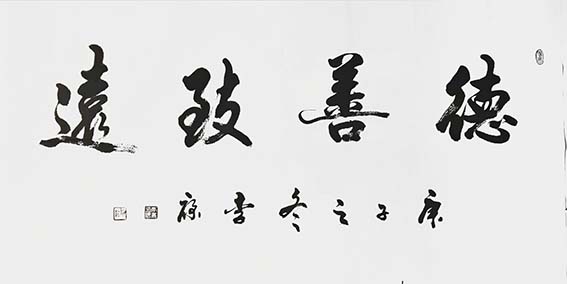 德善致遠
庚子之冬李